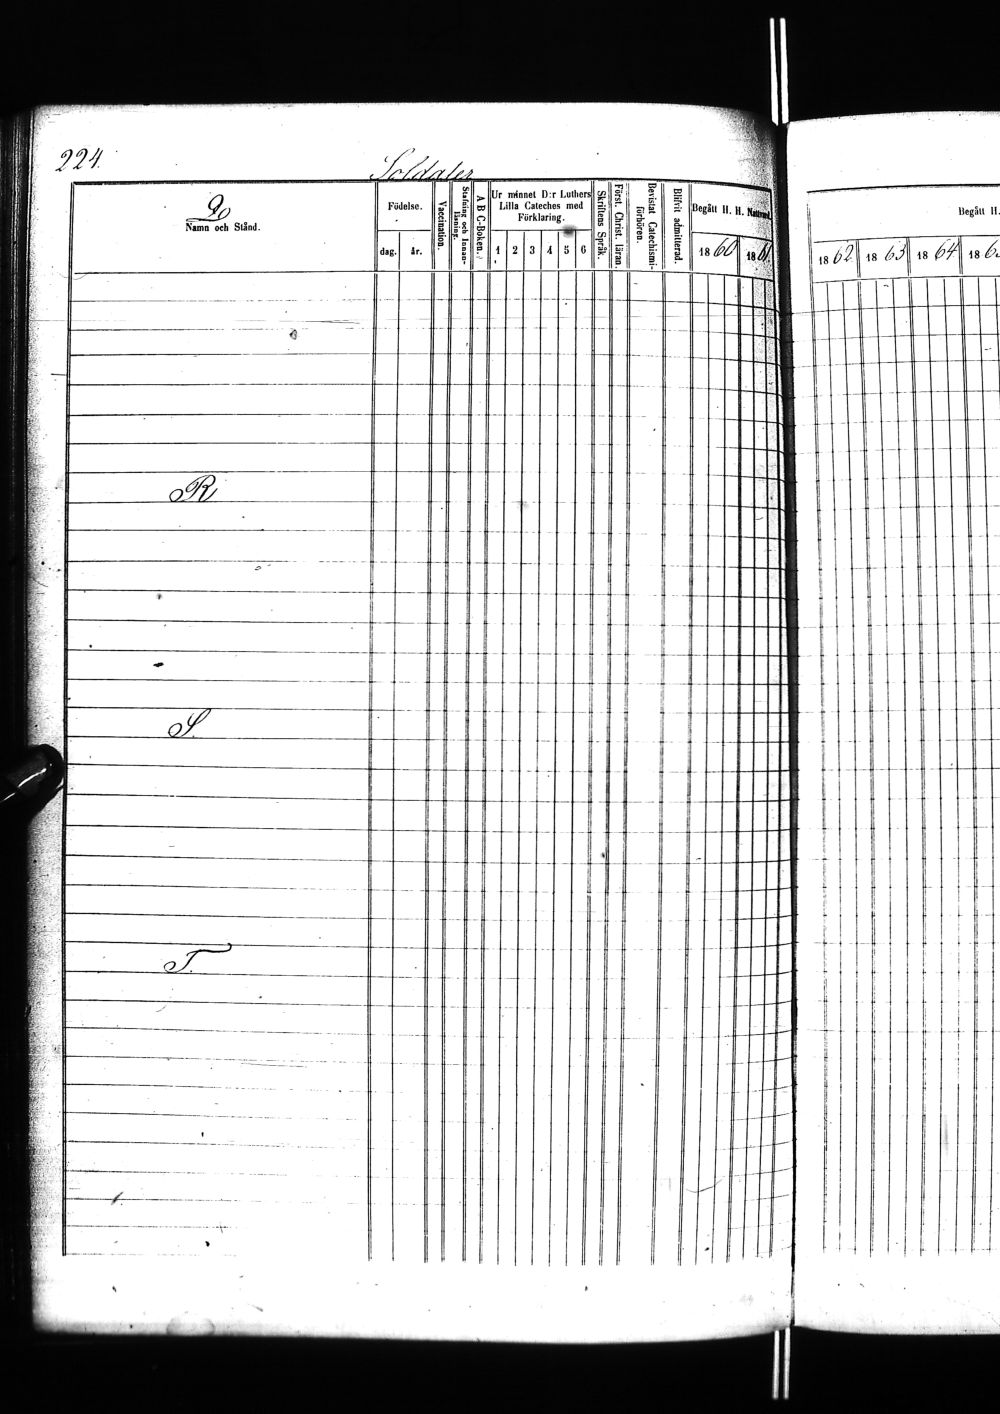 224.
Soldater
Q
Namn och Stånd.
Födelse.
dag. år.
Vaccination.
Stafning och Innan-
läsning.
A B C-Boken.
Ur minnet D:r Luthers
Lilla Cateches med
Förklaring.
1 2 3 4 5 6
Skriftens Språk.
Först. Christ. läran.
Bevistat Catechismi-
förhören.
Blifvit admitterad.
Begått H. H. Nattvard.
1860 1861.
Begått H.
1862 1863 1864 186
R
S.
T.